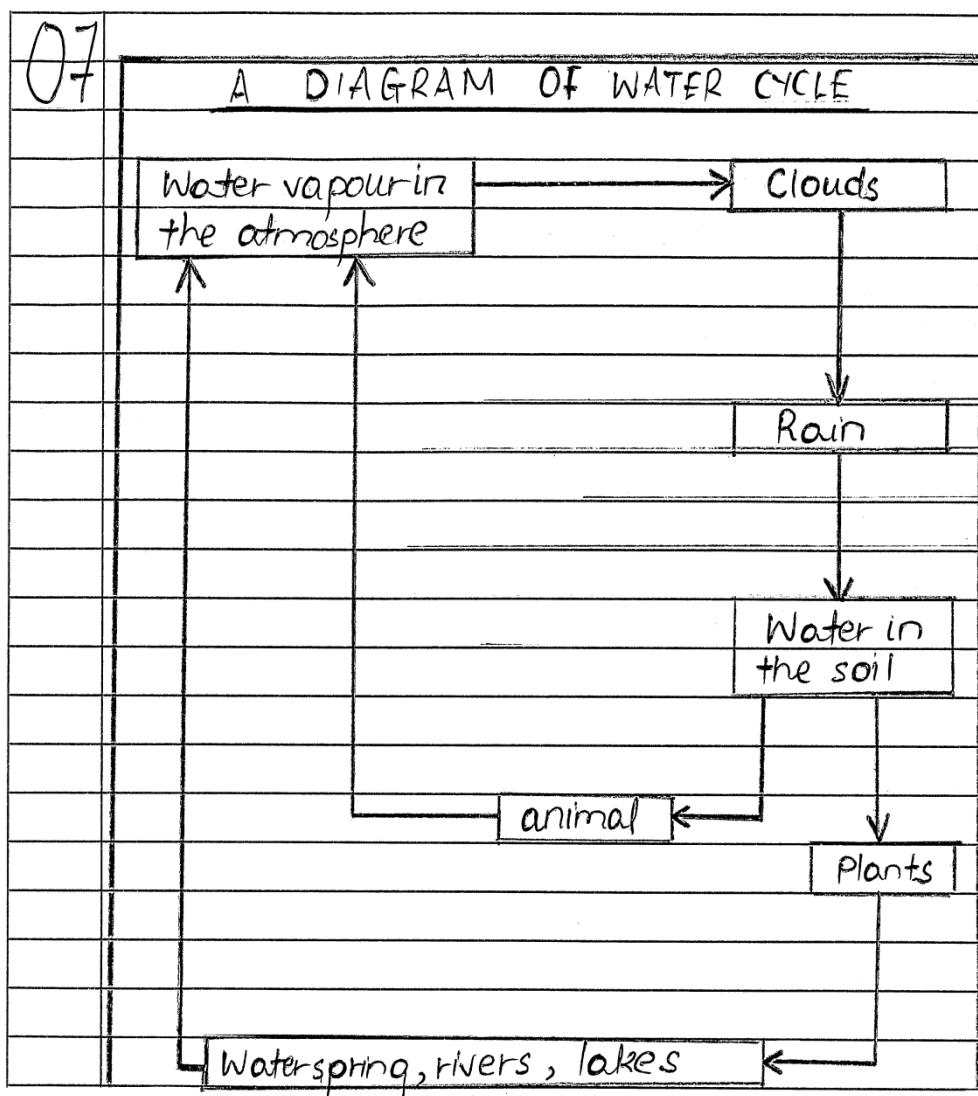 07
A DIAGRAM OF WATER CYCLE
Water vapour in
the atmosphere
Clouds
Rain
Water in
the soil
animal
Plants
Waterspring, rivers, lakes